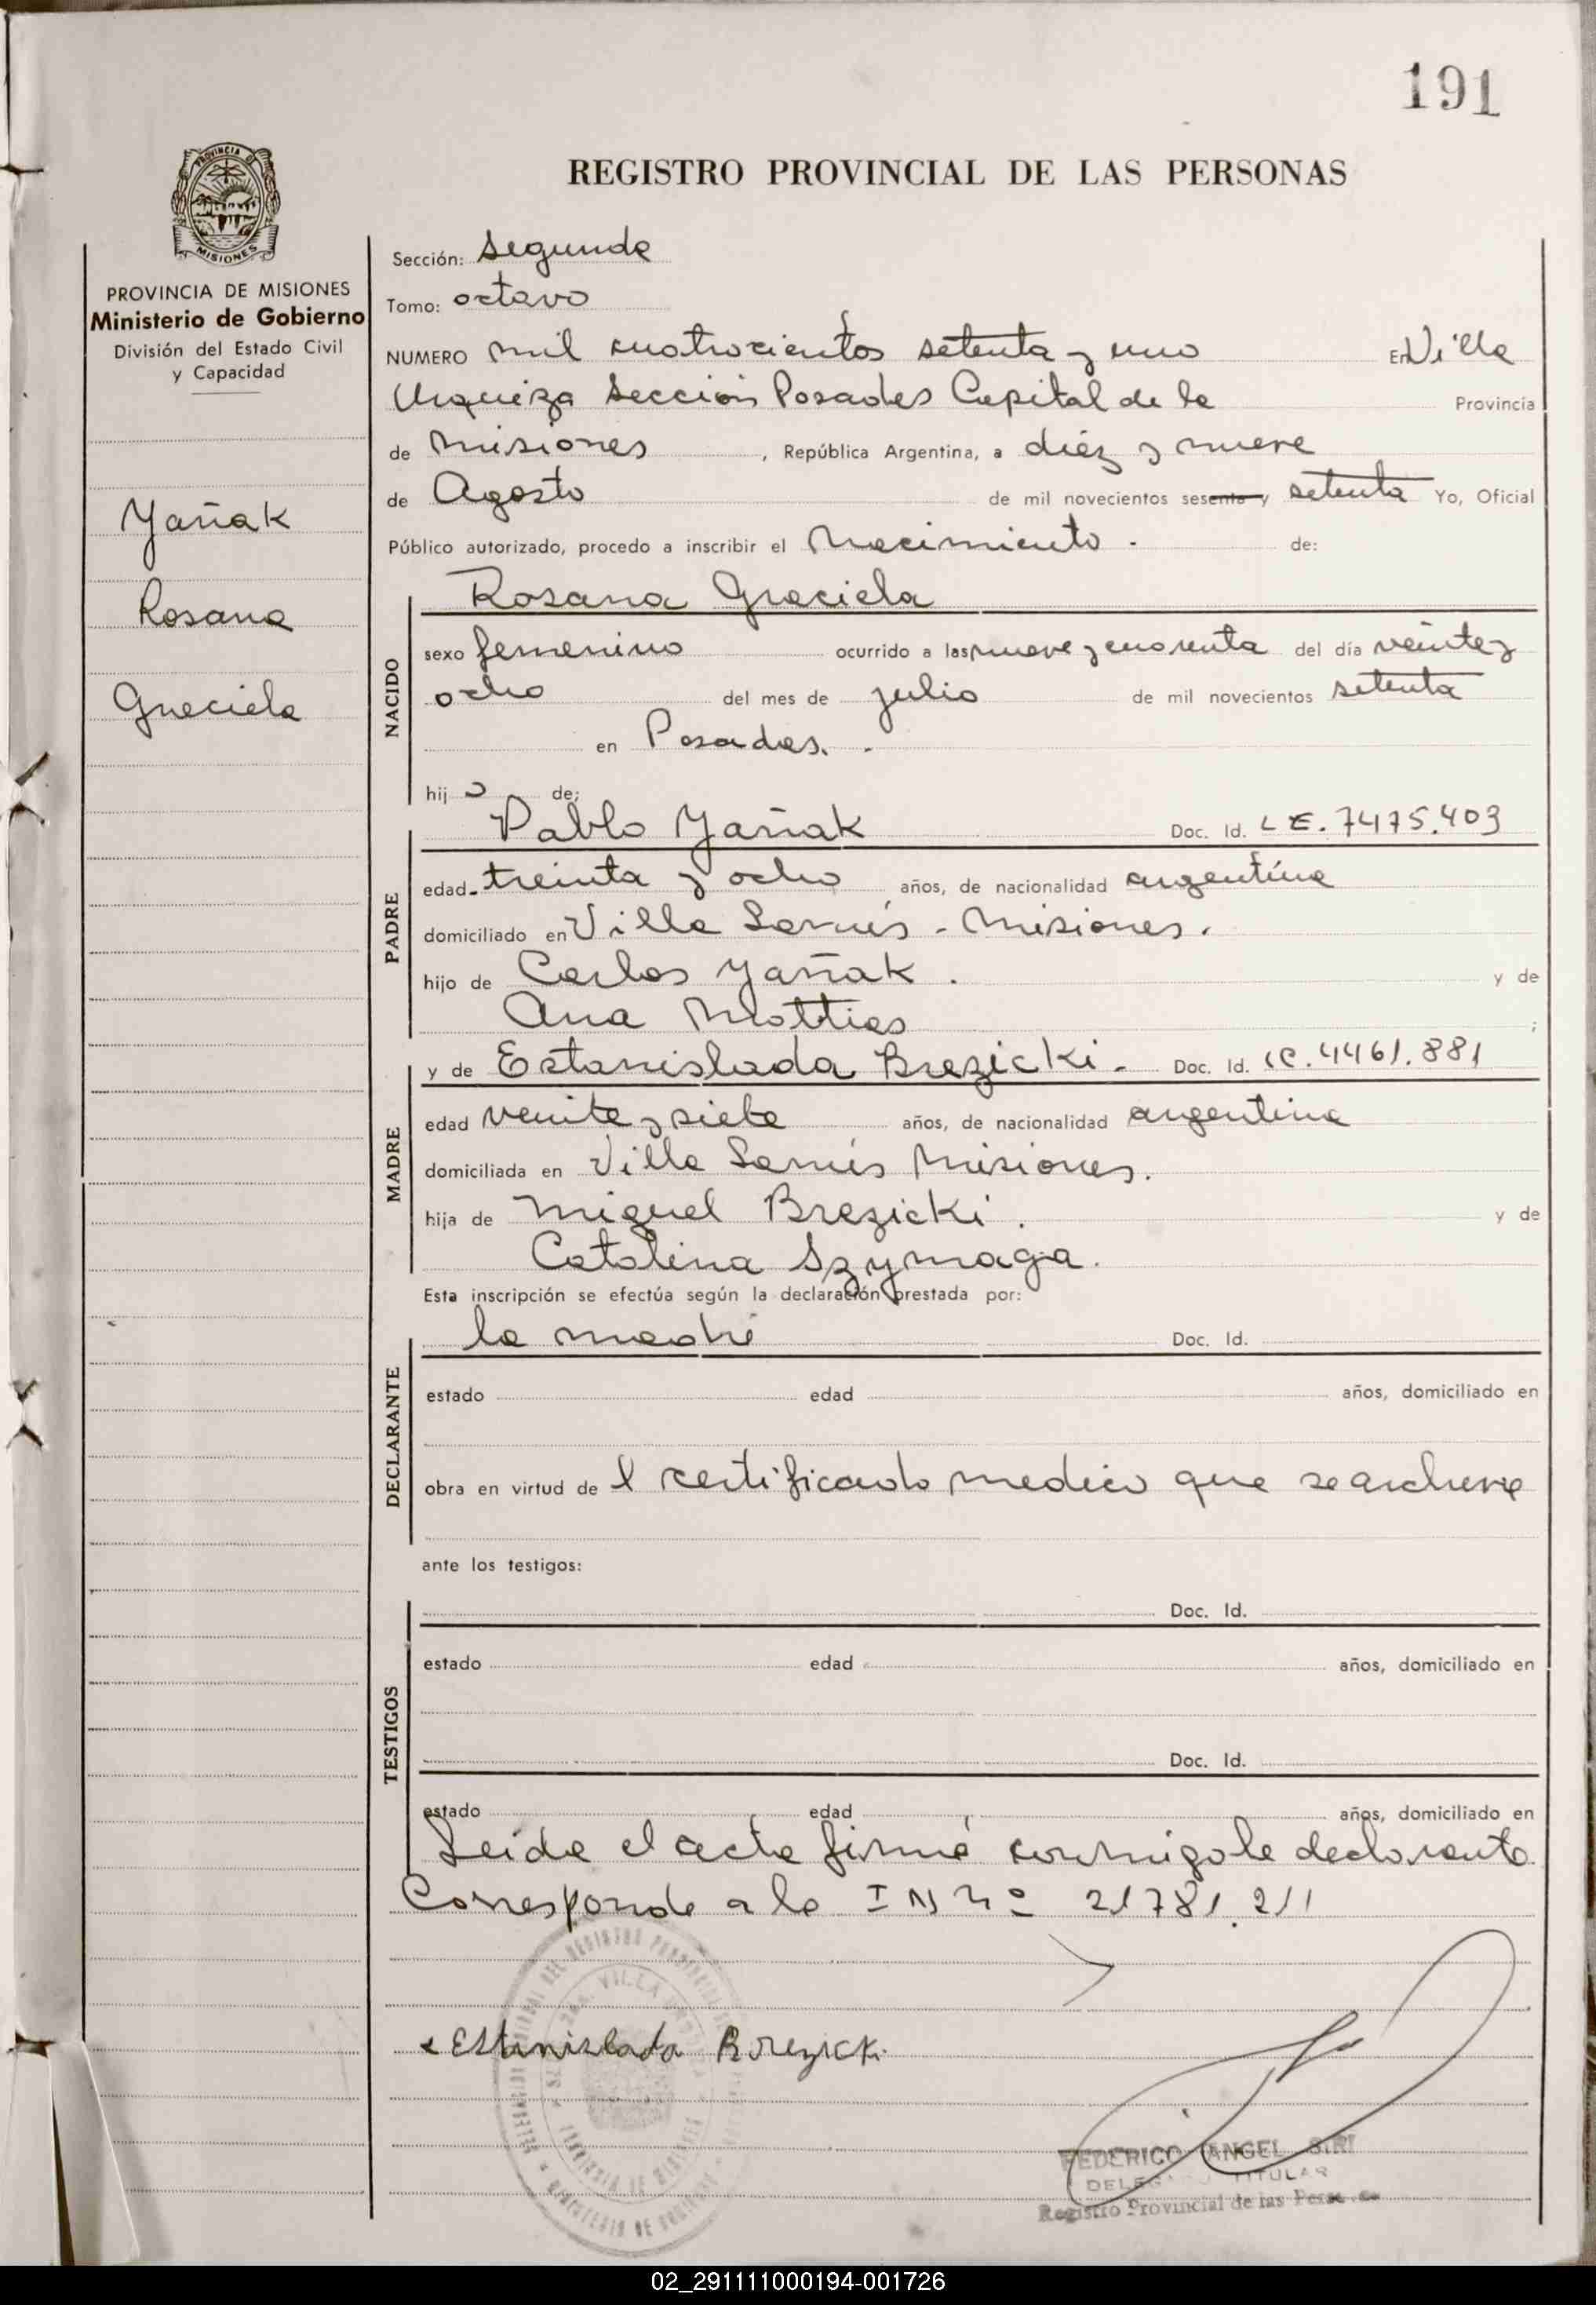 191
REGISTRO PROVINCIAL DE LAS PERSONAS
PROVINCIA DE
MISIONES
PROVINCIA DE MISIONES
Ministerio de Gobierno
División del Estado Civil
y Capacidad
Yañak
Rosana
Graciela
Sección: Segunda
Tomo: octavo
NUMERO mil cuatrocientos setenta y uno En Villa
Urquiza Sección Posadas Capital de la Provincia
de Misiones, República Argentina, a diéz y nueve
de Agosto de mil novecientos sesenta y setenta Yo, Oficial
Público autorizado, procedo a inscribir el Nacimiento. de:
Rosana Graciela
NACIDO
sexo femenino ocurrido a las nueve y cuarenta del día veinte y
ocho del mes de julio de mil novecientos setenta
en Posadas.
hij a de:
PADRE
Pablo Yañak Doc. Id. LE. 7475.403
edad treinta y ocho años, de nacionalidad argentina
domiciliado en Villa Lanús - Misiones.
hijo de Carlos Yañak. y de
Ana Motties;
MADRE
y de Estanislada Brezicki. Doc. Id. LC. 4461.881
edad veinte y siete años, de nacionalidad argentina
domiciliada en Villa Lanús Misiones.
hija de Miguel Brezicki. y de
Catalina Szymaga.
Esta inscripción se efectúa según la declaración prestada por:
DECLARANTE
la madre Doc. Id.
estado edad años, domiciliado en
obra en virtud de l certificado medico que se archiva
ante los testigos:
TESTIGOS
Doc. Id.
estado edad años, domiciliado en
Doc. Id.
estado edad años, domiciliado en
Leida el acta firma conmigo la declarante
Corresponde a la IN nº 21781.211
Estanislada Brezicki
FEDERICO ANGEL SIRI
TITULAR
Registro Provincial de las
02_291111000194-001726